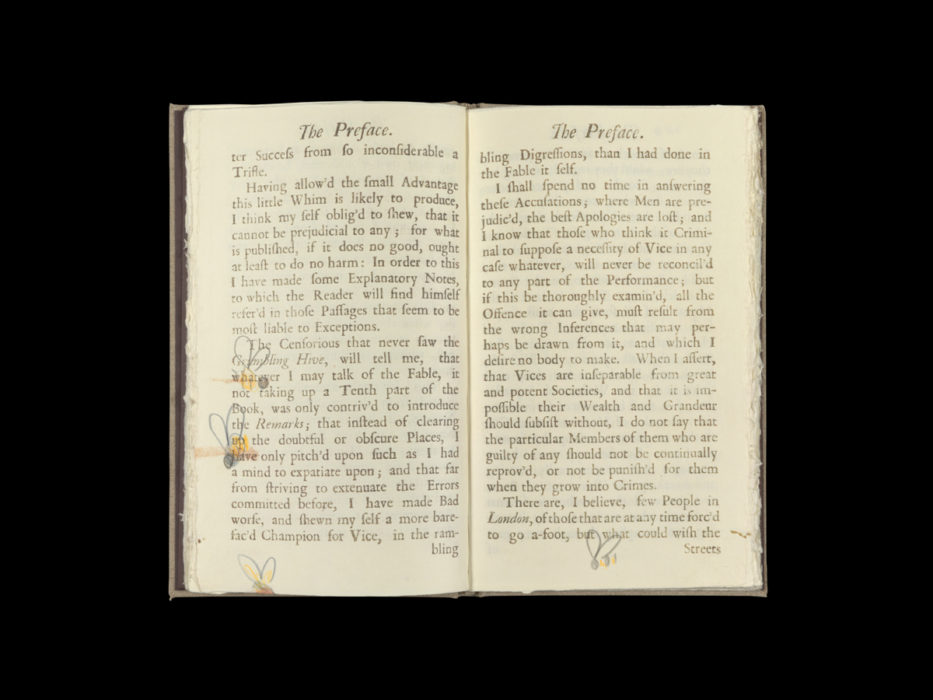 The Preface.
ter Succeſs from ſo inconſiderable a
Trifle.
Having allow'd the ſmall Advantage
this little Whim is likely to produce,
I think my ſelf oblig'd to ſhew, that it
cannot be prejudicial to any; for what
is publiſhed, if it does no good, ought
at leaſt to do no harm: In order to this
I have made ſome Explanatory Notes,
to which the Reader will find himſelf
refer'd in thoſe Paſſages that ſeem to be
moſt liable to Exceptions.
The Cenſorious that never ſaw the
Grumbling Hive, will tell me, that
whatever I may talk of the Fable, it
not taking up a Tenth part of the
Book, was only contriv'd to introduce
the Remarks; that inſtead of clearing
up the doubtful or obſcure Places, I
have only pitch'd upon ſuch as I had
a mind to expatiate upon; and that far
from ſtriving to extenuate the Errors
committed before, I have made Bad
worſe, and ſhewn my ſelf a more bare-
fac'd Champion for Vice, in the ram-
bling
The Preface.
bling Digreſſions, than I had done in
the Fable it ſelf.
I ſhall ſpend no time in anſwering
theſe Accuſations; where Men are pre-
judic'd, the beſt Apologies are loſt; and
I know that thoſe who think it Crimi-
nal to ſuppoſe a neceſſity of Vice in any
caſe whatever, will never be reconcil'd
to any part of the Performance; but
if this be thoroughly examin'd, all the
Offence it can give, muſt reſult from
the wrong Inferences that may per-
haps be drawn from it, and which I
deſire no body to make. When I aſſert,
that Vices are inſeparable from great
and potent Societies, and that it is im-
poſſible their Wealth and Grandeur
ſhould ſubſiſt without, I do not ſay that
the particular Members of them who are
guilty of any ſhould not be continually
reprov'd, or not be puniſh'd for them
when they grow into Crimes.
There are, I believe, few People in
London, of thoſe that are at any time forc'd
to go a-foot, but what could wiſh the
Streets